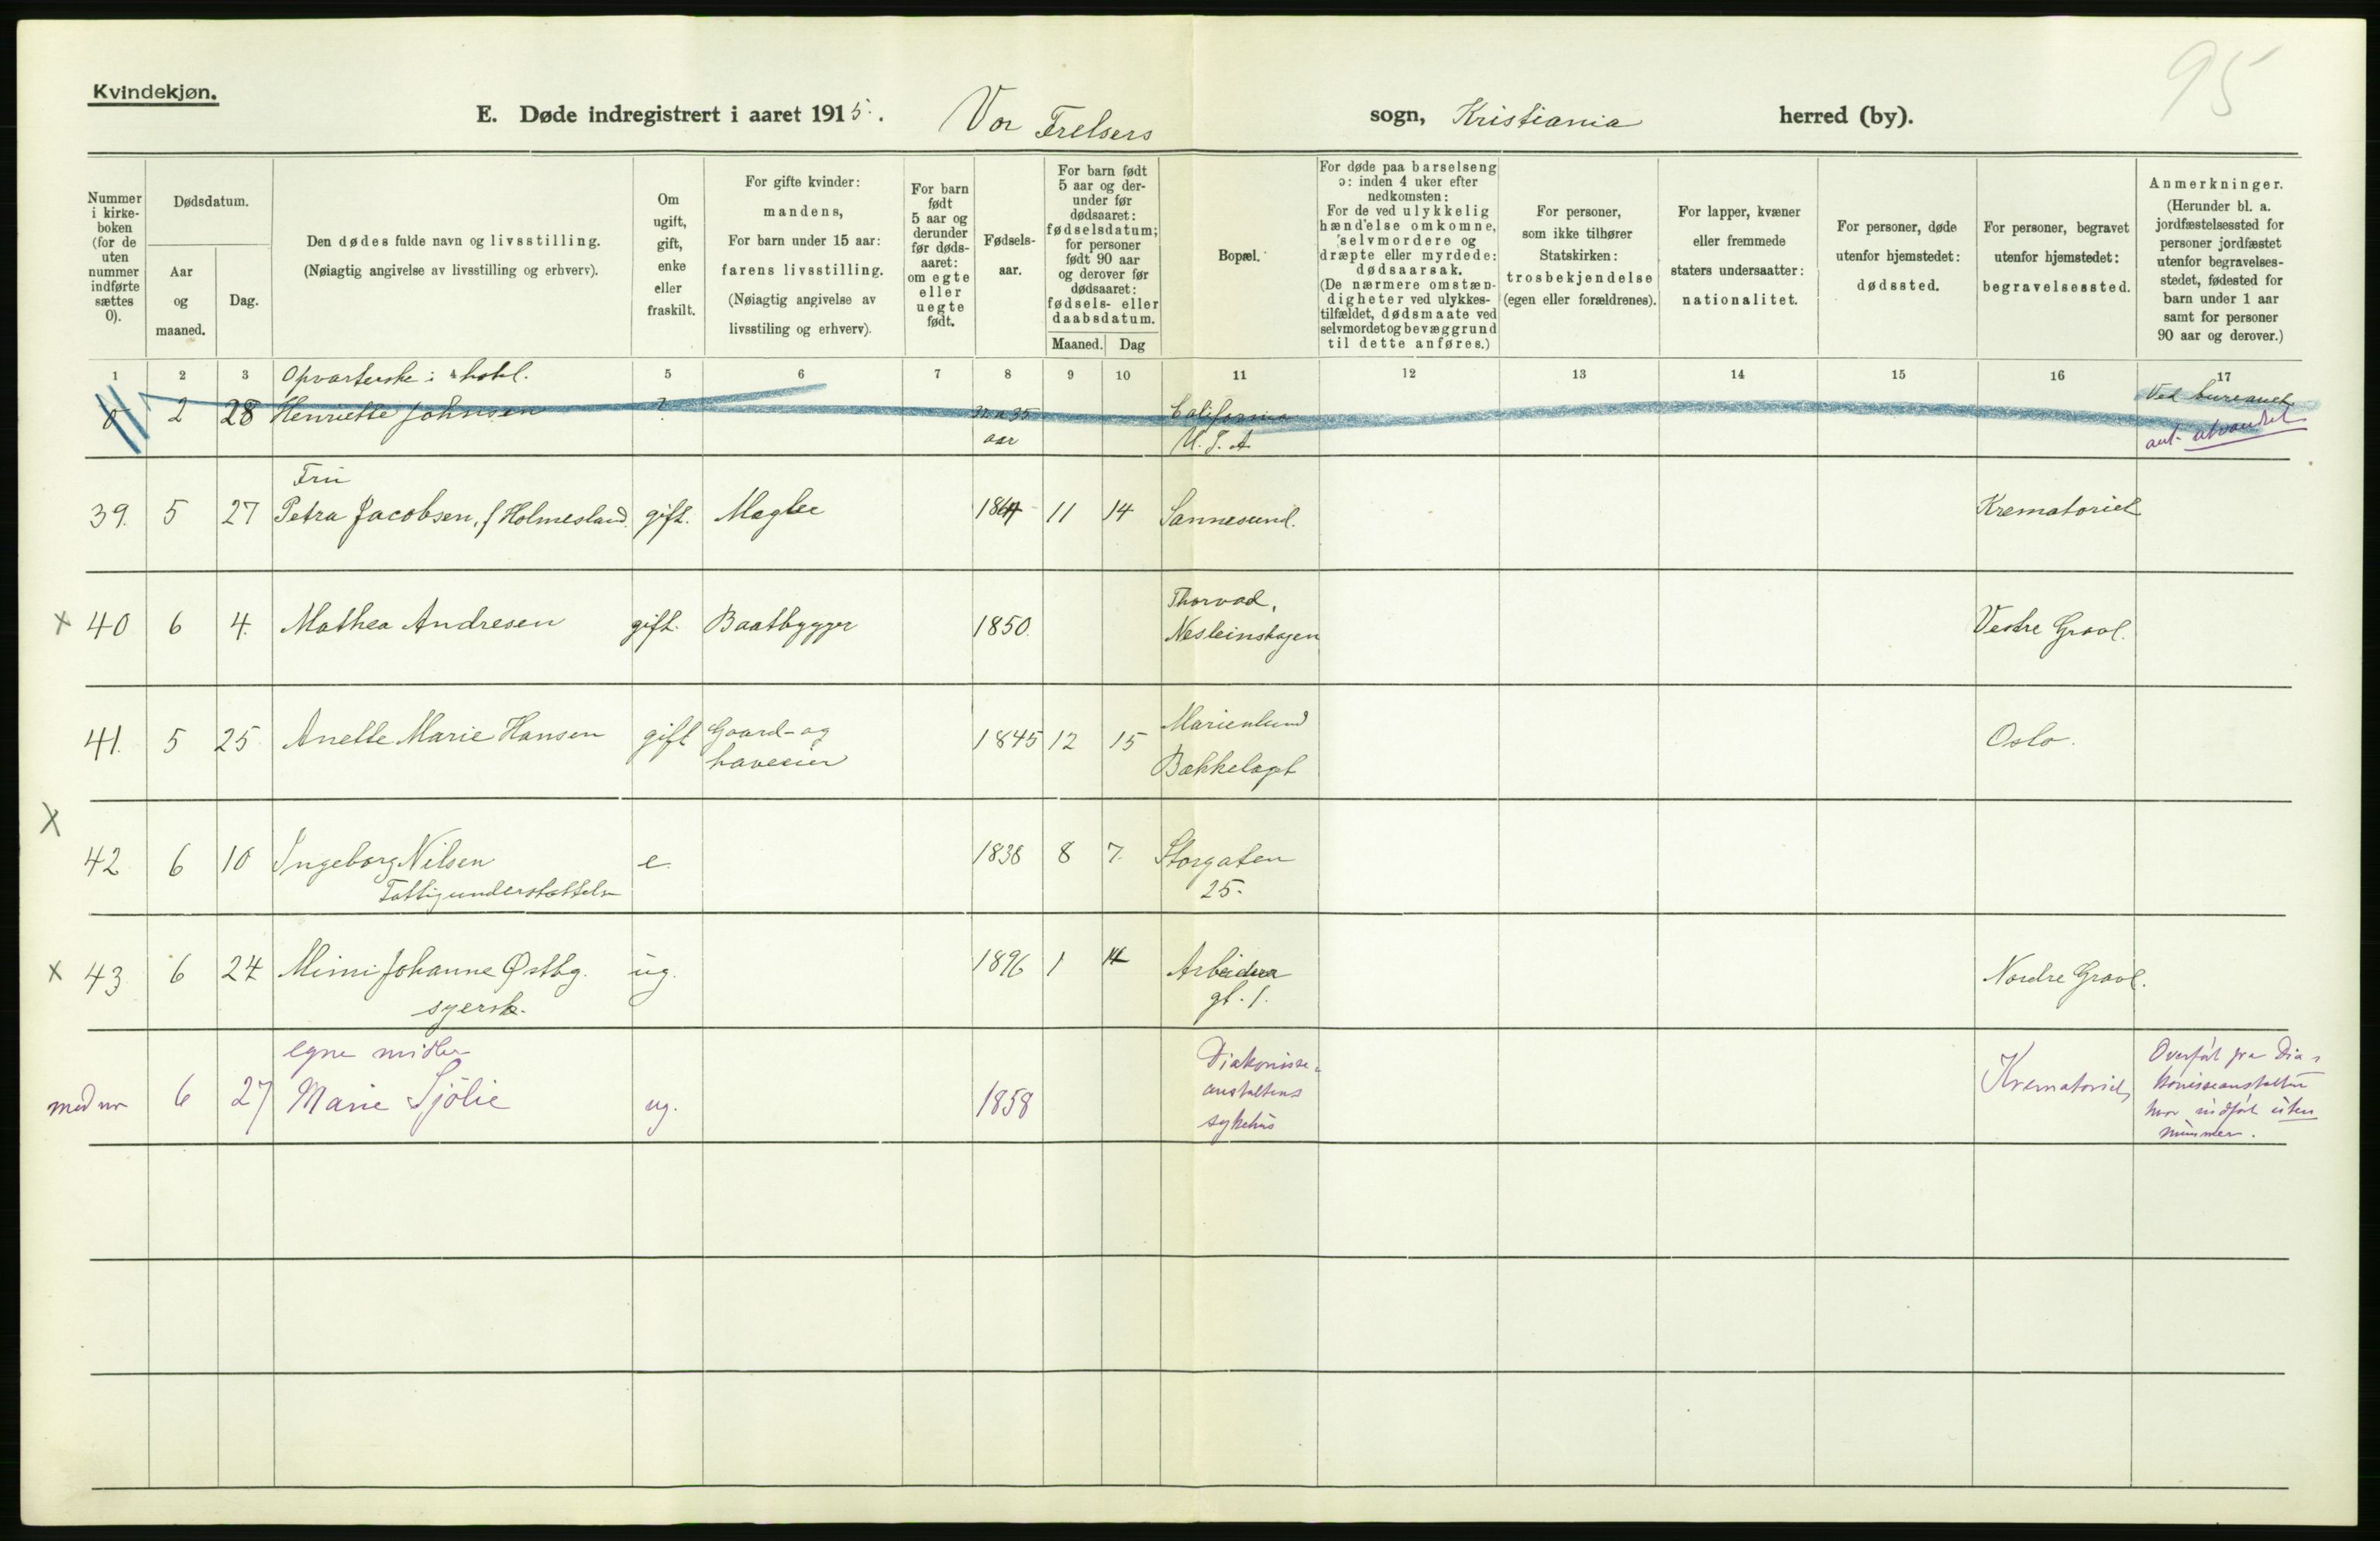 95
Kvindekjøn.
E. Døde indregistrert i aaret 1915. Vor Frelsers sogn, Kristiania herred (by).
Nummer i kirke- boken (for de uten nummer indførte sættes 0).
Dødsdatum.
Aar og maaned.
Dag.
Den dødes fulde navn og livsstilling.
(Nøiagtig angivelse av livsstilling og erhverv).
Om ugift, gift, enke eller fraskilt.
For gifte kvinder: mandens,
For barn under 15 aar: farens livsstilling.
(Nøiagtig angivelse av livsstiling og erhverv).
For barn født 5 aar og derunder før døds- aaret: om egte eller uegte født.
Fødsels- aar.
For barn født 5 aar og der- under før dødsaaret: fødselsdatum; for personer født 90 aar og derover før dødsaaret: fødsels- eller daabsdatum.
Maaned. Dag
Bopæl.
For døde paa barselseng ɔ: inden 4 uker efter nedkomsten:
For de ved ulykkelig hændelse omkomne, selvmordere og dræpte eller myrdede: dødsaarsak.
(De nærmere omstæn- digheter ved ulykkes- tilfældet, dødsmaate ved selvmordet og bevæggrund til dette anføres.)
For personer, som ikke tilhører Statskirken: trosbekjendelse (egen eller forældrenes).
For lapper, kvæner eller fremmede staters undersaatter: nationalitet.
For personer, døde utenfor hjemstedet: dødssted.
For personer, begravet utenfor hjemstedet: begravelsessted.
Anmerkninger.
(Herunder bl. a. jordfæstelsessted for personer jordfæstet utenfor begravelses- stedet, fødested for barn under 1 aar samt for personer 90 aar og derover.)
1 2 3 4 5 6 7 8 9 10 11 12 13 14 15 16 17
Opvarterske i hotel.
0 2 28 Henriette Johnsen ? 35 aar California U.S.A Ved bureauet ant. utvandret
Fru
39. 5 27 Petra Jacobsen, f Holmesland. gift. Megler 1864 11 14 Sannesund. Krematoriet
x 40 6 4. Mathea Andresen gift. Baatbygger 1850. Nesteinskogen Vestre Gravl.
41. 5 25 Anette Marie Hansen gift Gaard- og haveeier 1845 12 15 Marienlund Bækkelaget Oslo.
x
42 6 10 Ingeborg Nilsen e. 1838 8 7. Storgaten 25.
Fattigunderstøttelse
x 43 6 24 Mimi Johanne Østbg. ug. 1896 1 14 Arbeider gt. 1. Nordre Gravl.
syersk.
egne midler
med nr 6 27 Marie Sjölie ug. 1858 Diakonisse- anstaltens sykehus Krematoriet Overført fra Dia- konisseanstalten hvor indført uten nummer.